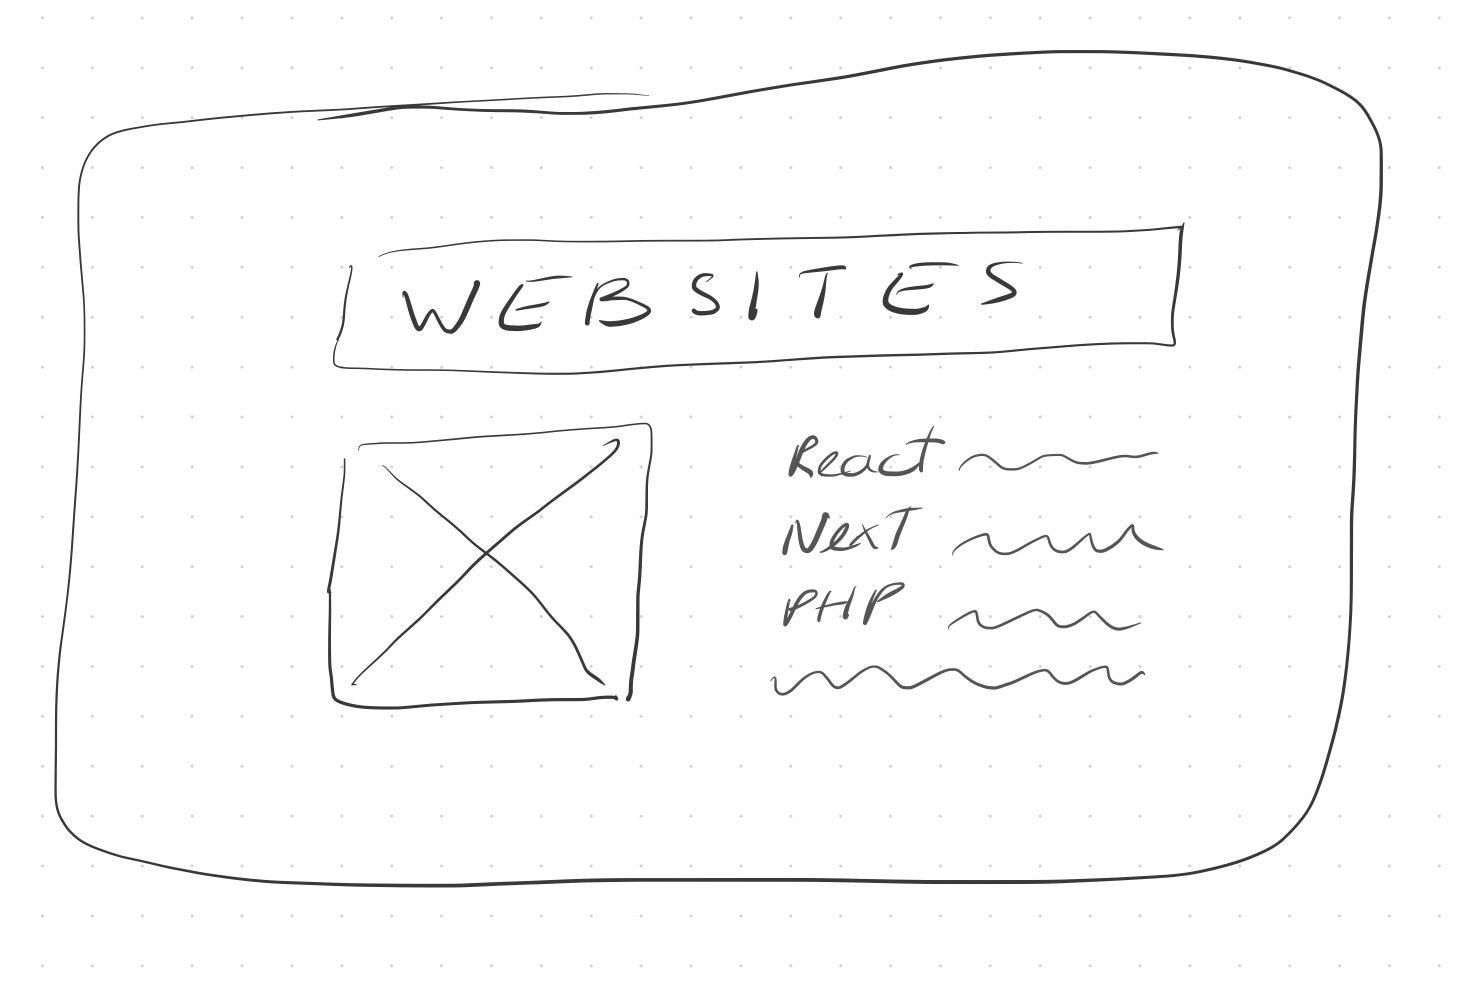 WEBSITES
React
Next
PHP